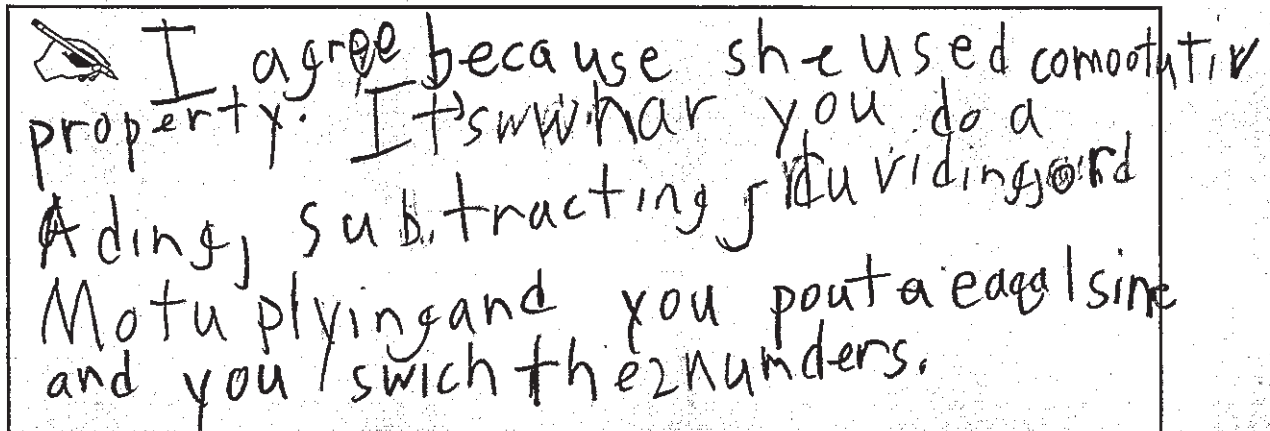 I agree because she used comootutiv
property. It's whar you do a
Ading, subtracting, duviding, ord
Motuplying and you pout a eaqal sine
and you swich the 2 numders.